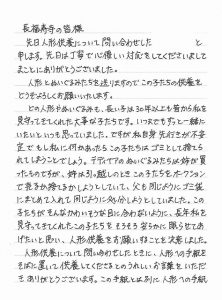 長福寿寺の皆様
先日人形供養について問い合わせした　　　　と
申します。先日は丁寧で心優しい対応をしてくださいまして
まことにありがとうございました。
人形とぬいぐるみたちを送りますのでこの子たちの供養を
どうぞよろしくお願いいたします。
どの人形やぬいぐるみも、長い子は30年以上も昔から私を
見守ってきてくれた大事な子たちです。いつまでもずっと一緒に
いたいといつも思っていました。ですが私自身先行きが不安
定でもし私に何かあったらこの子たちはゴミとして捨てら
れてしまうことでしょう。テディベアのぬいぐるみたちは姉が買
ったものですが、姉は引っ越しのときこの子たちをオークション
で売るか捨てるかしようとしていて、父も同じようにゴミ袋
にまとめて入れて同じように処分しようとしていました。この
子たちがそんなかわいそうな目に合わないように、長年私を
見守ってきてくれたこの子たちをそろそろ安らかに眠らせてあ
げたいと思い、人形供養をお願いすることを決意しました。
人形供養について問い合わせしたときに、人形への手紙を
そばに置いて供養してくださるとのうれしいお言葉をいただき
ありがとうございます。この手紙とは別に人形への手紙